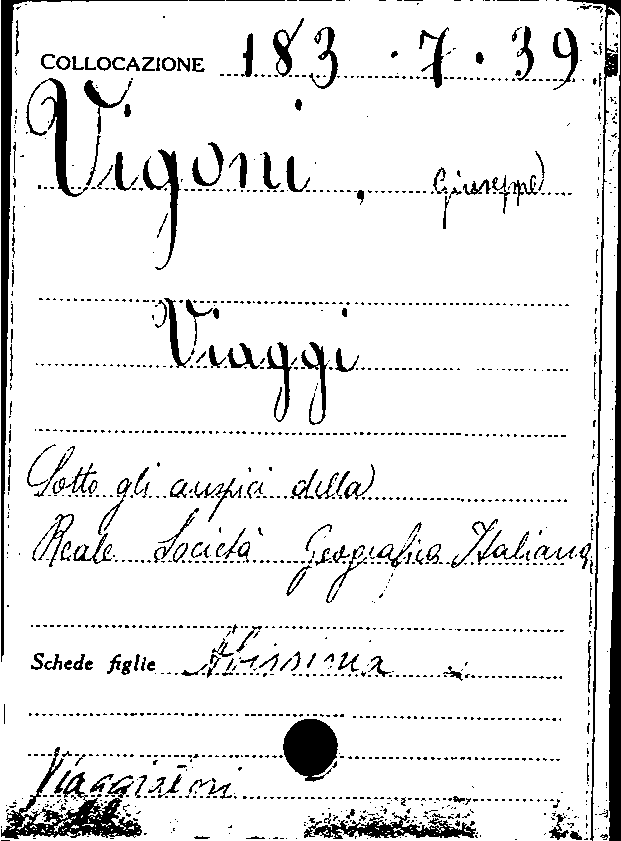 COLLOCAZIONE 183 . 7 . 39
Vigoni, Giuseppe
Viaggi
Sotto gli auspici della
Reale Società Geografica Italiana
Schede figlie Abissinia
Viaggiatori